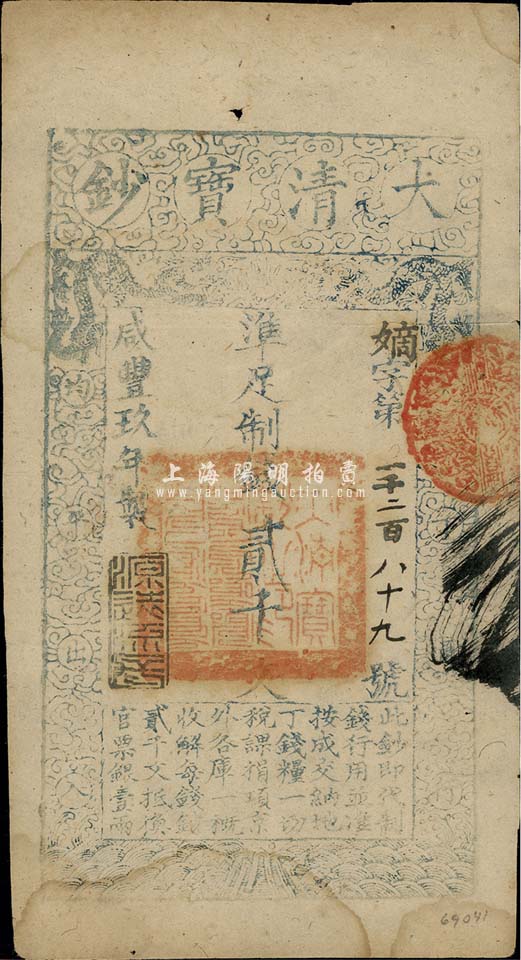 大清寶鈔
嫡字第一千二百八十九號
準足制錢貳千文
咸豐玖年製
此鈔即代制
錢行用並準
按成交納地
丁錢糧一切
稅課捐項京
外各庫一概
收解每錢鈔
貳千文抵換
官票銀壹兩
上海陽明拍賣
www.yangmingauction.com
69041